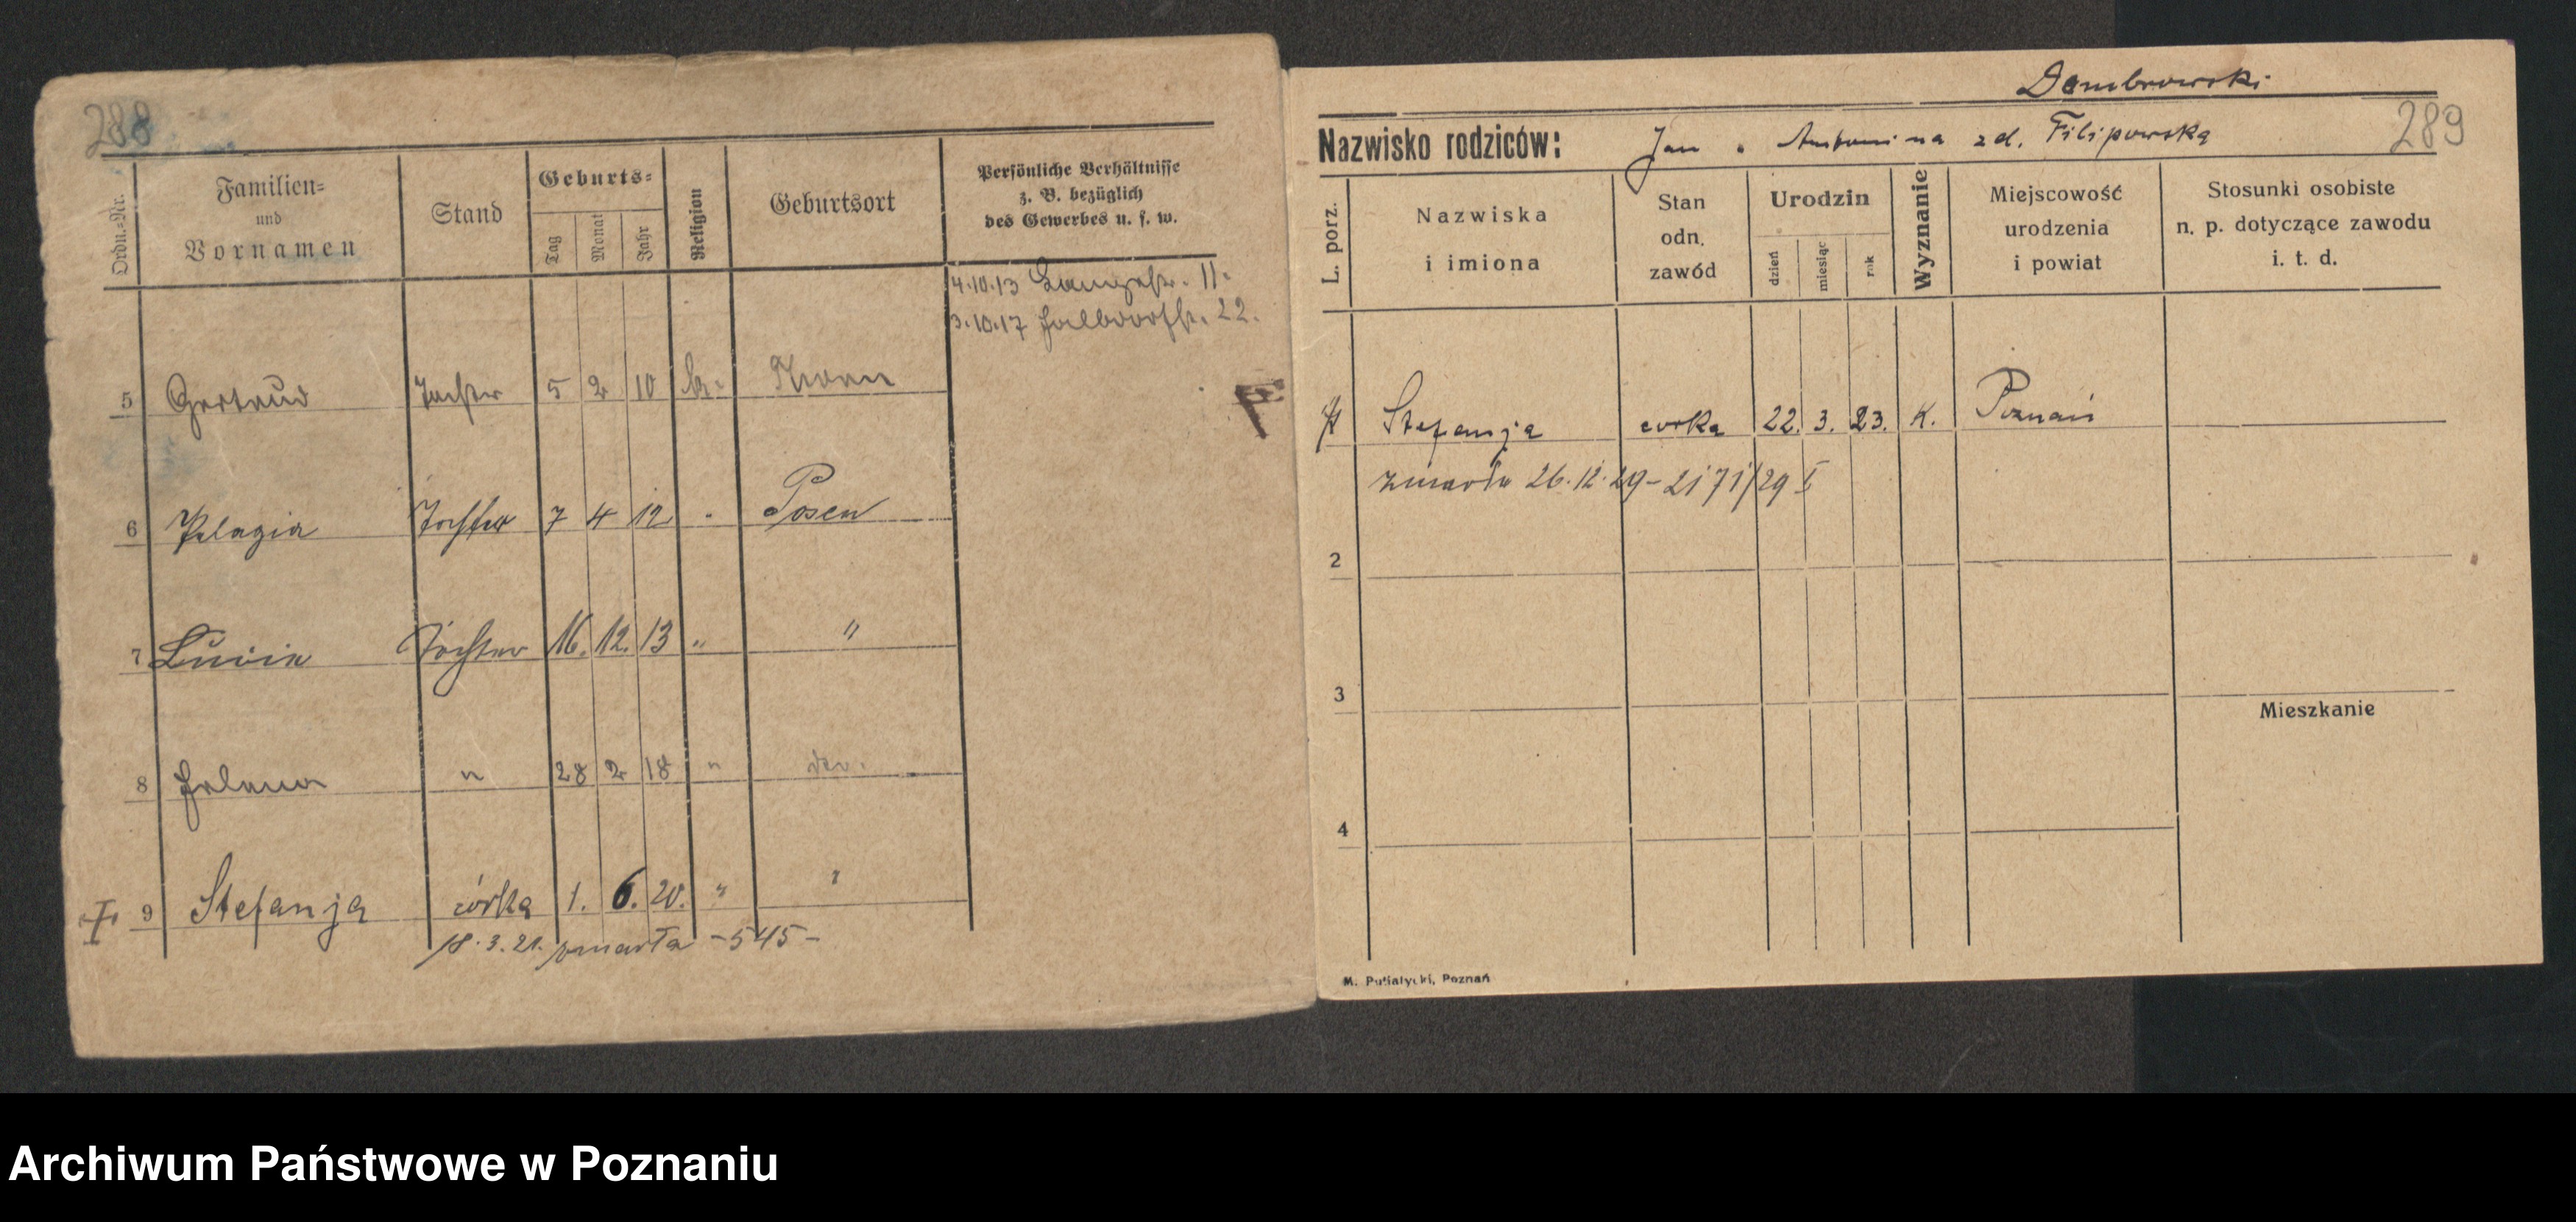 288
Ordn.-Nr.
Familien- und Vornamen
Stand
Geburts-
Tag Monat Jahr
Religion
Geburtsort
Persönliche Verhältnisse z. B. bezüglich des Gewerbes u. s. w.
4.10.13 Langestr. 11.
3.10.17 Halbdorfstr. 22.
5 Gertrud Tochter 5 2 10 k. Thorn
6 Pelagia Tochter 7 4 12 " Posen
7 Lucie Tochter 16. 12. 13 " "
8 Helena " 28 2 18 "
9 Stefanja córka 1. 6. 20. " "
18.3.21. zmarła -545-
Dembrowski
289
Nazwisko rodziców: Jan . Antonina zd. Filipowska
L. porz.
Nazwiska i imiona
Stan odn. zawód
Urodzin
dzień miesiąc rok
Wyznanie
Miejscowość urodzenia i powiat
Stosunki osobiste n. p. dotyczące zawodu i. t. d.
Stefanja corka 22. 3. 23. K. Poznań
zmarła 26.12.29 - 2171/29 I
2
3
Mieszkanie
4
M. Putiatycki, Poznań
Archiwum Państwowe w Poznaniu